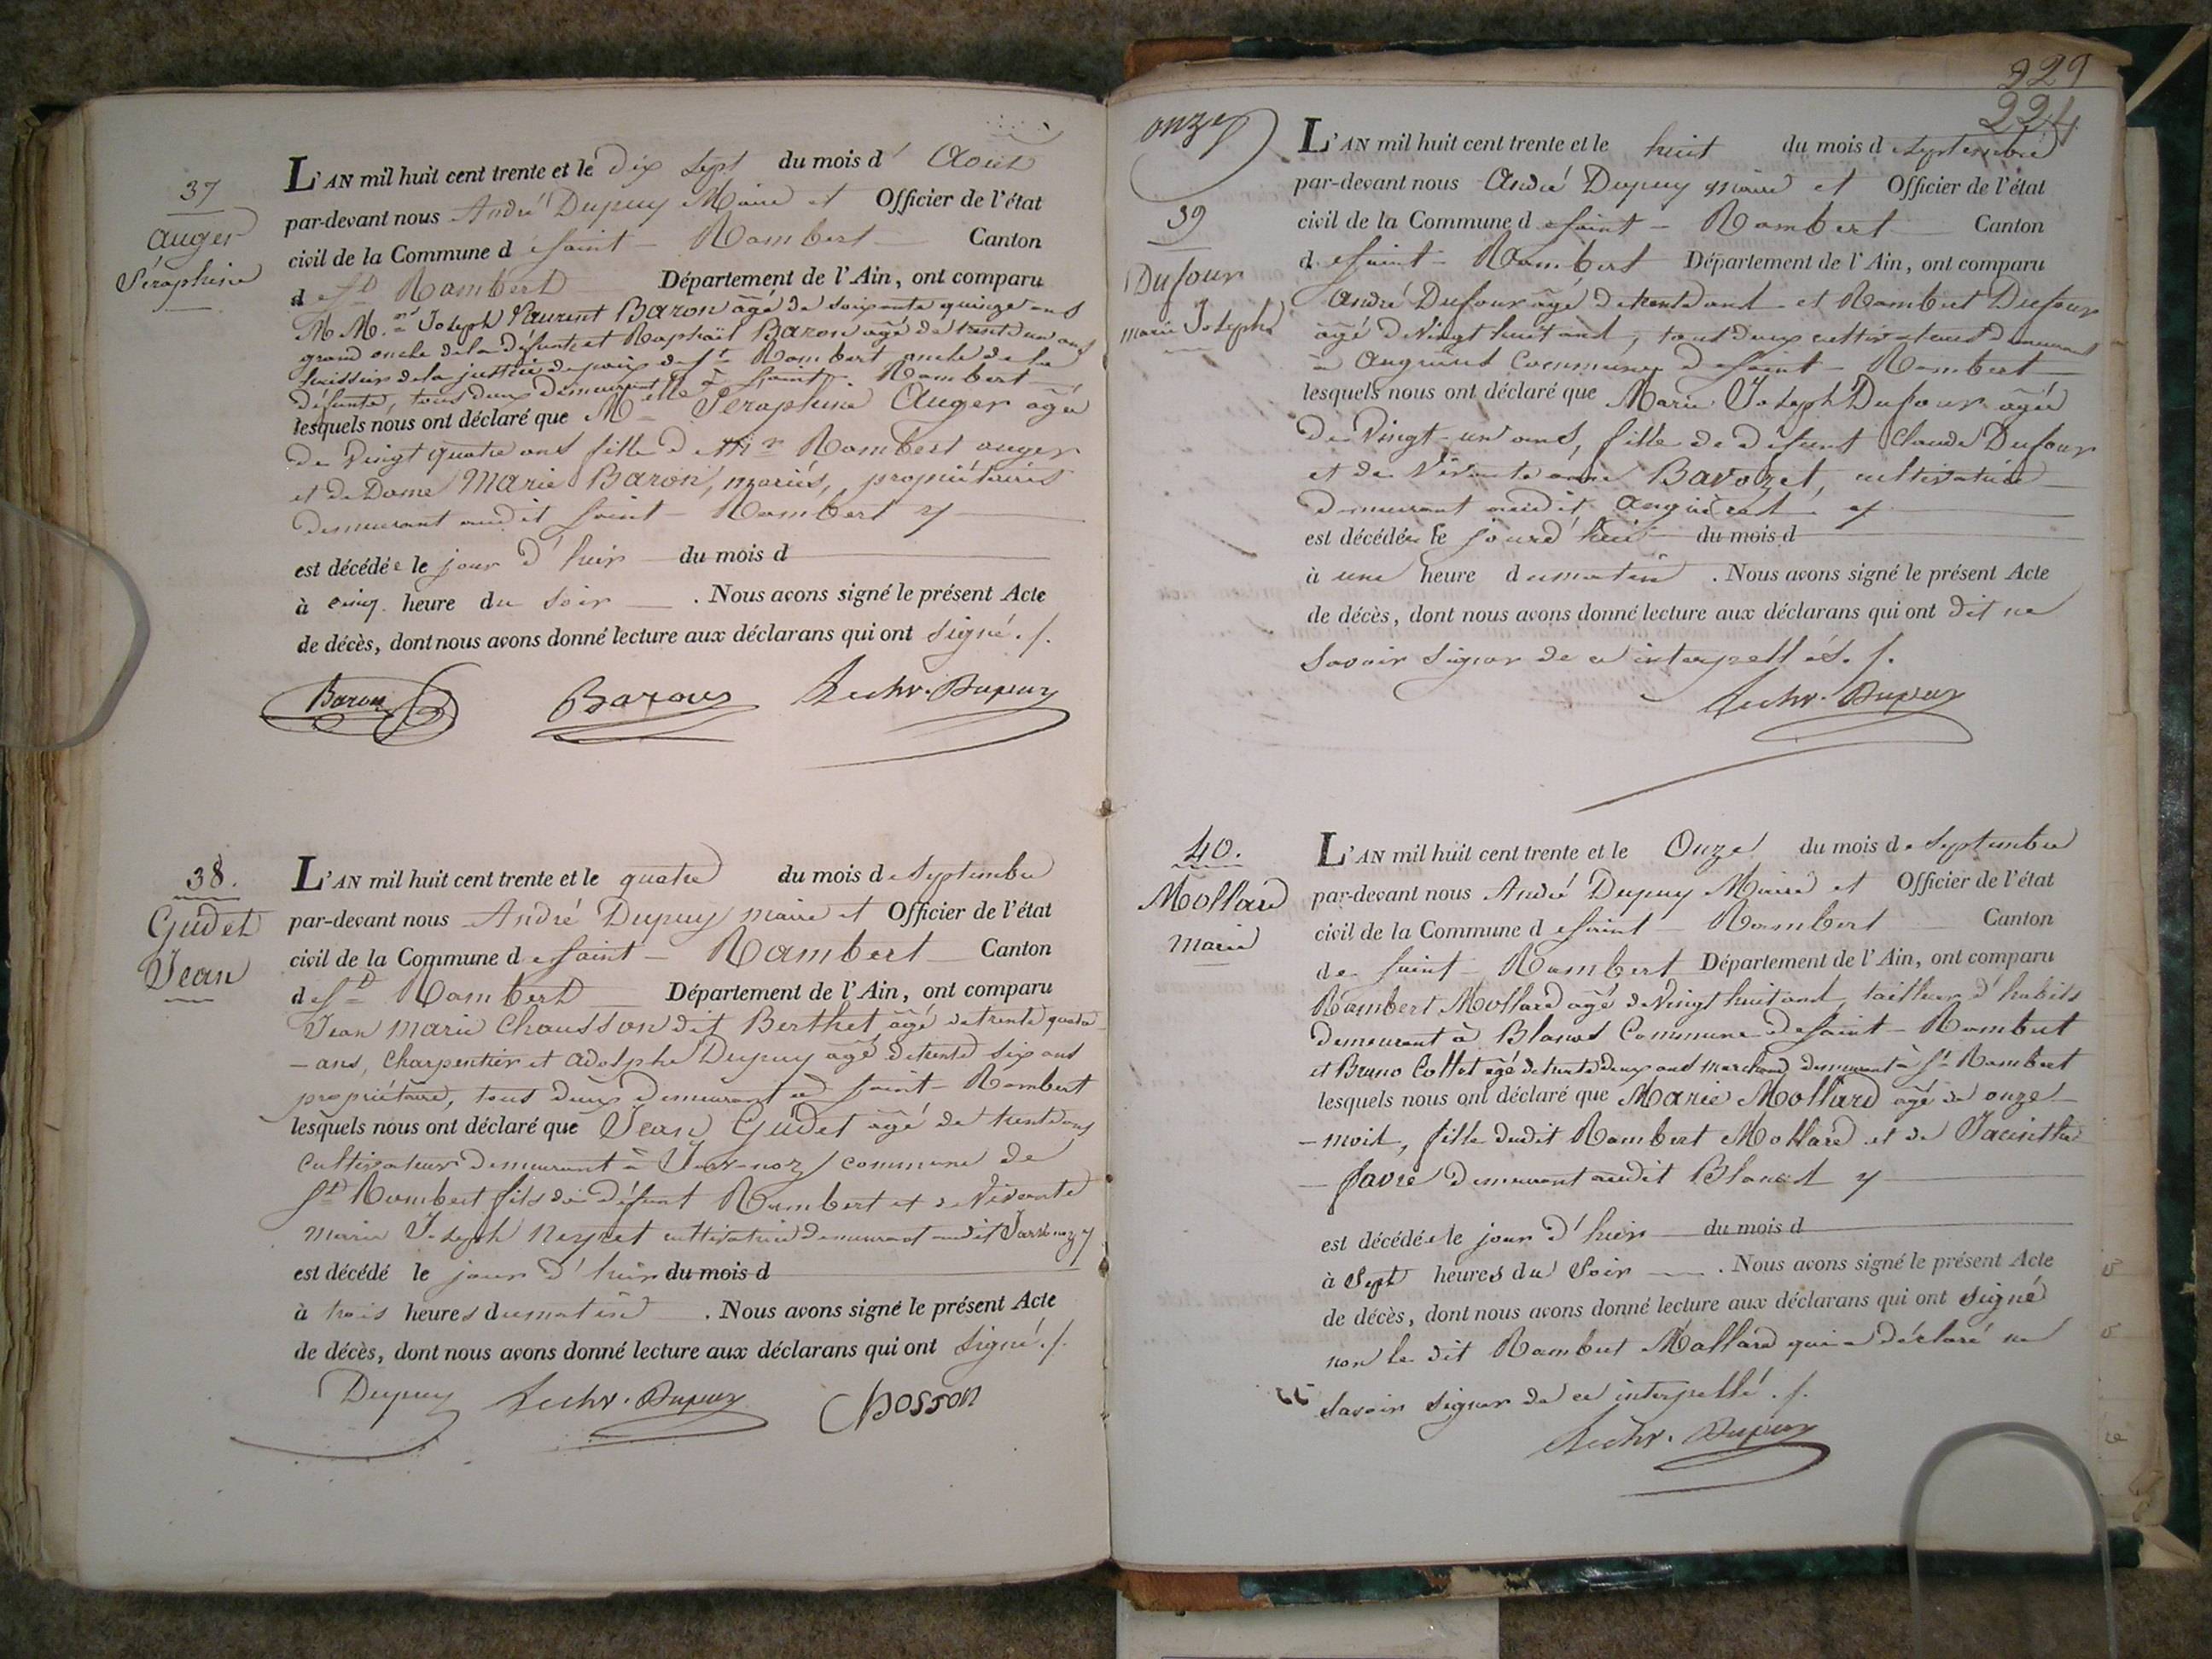 37
Auger
Séraphine
L'AN mil huit cent trente et le dix sept du mois d' Aout
par-devant nous André Dupuy Maire et Officier de l'état
civil de la Commune de Saint - Rambert Canton
de St Rambert Département de l'Ain, ont comparu
M.M. Joseph Laurent Baron âgé de soixante quinze ans
grand oncle de la défunte et Raphaël Baron âgé de trente un ans
huissier de la justice de paix de St Rambert oncle de la
défunte, tous deux demeurant à Saint - Rambert
lesquels nous ont déclaré que Melle Séraphine Auger âgée
de vingt quatre ans fille de Mr Rambert auger
et de Dame Marie Baron, mariés, propriétaires
demeurant audit Saint - Rambert
est décédée le jour d'hier du mois d
à cinq heure du soir . Nous avons signé le présent Acte
de décès, dont nous avons donné lecture aux déclarans qui ont signé ./.
Baron Baron Dupuy
38.
Gudet
Jean
L'AN mil huit cent trente et le quatre du mois de Septembre
par-devant nous André Dupuy maire et Officier de l'état
civil de la Commune de Saint - Rambert Canton
de St Rambert Département de l'Ain, ont comparu
Jean Marie Chausson dit Berthet âgé de trente quatre
- ans, Charpentier et Adolphe Dupuy âgé de trente six ans
propriétaire, tous deux demeurant à Saint - Rambert
lesquels nous ont déclaré que Jean Gudet âgé de trente ans
Cultivateur demeurant à commune de
St Rambert fils de défunt Rambert et de vivante
marie Joseph Neyret cultivatrice demeurant audit
est décédé le jour d'hier du mois d
à trois heures du matin . Nous avons signé le présent Acte
de décès, dont nous avons donné lecture aux déclarans qui ont signé ./.
Dupuy Dupuy Chosson
229
224
onze
39
Dufour
marie Josephe
L'AN mil huit cent trente et le huit du mois de Septembre
par-devant nous André Dupuy maire et Officier de l'état
civil de la Commune de Saint - Rambert Canton
de Saint - Rambert Département de l'Ain, ont comparu
André Dufour âgé de trente ans et Rambert Dufour
âgé de vingt huit ans, tous deux cultivateurs demeurant
à Commune de Saint - Rambert
lesquels nous ont déclaré que Marie Joseph Dufour âgée
de vingt - un ans, fille de défunt Claude Dufour
et de vivante Bavozet, cultivatrice
demeurant audit
est décédée le jourd'hui du mois d
à une heure du matin . Nous avons signé le présent Acte
de décès, dont nous avons donné lecture aux déclarans qui ont dit ne
savoir signer de ce interpellés ./.
Dupuy
40.
Mollard
Marie
L'AN mil huit cent trente et le Onze du mois de Septembre
par-devant nous André Dupuy Maire et Officier de l'état
civil de la Commune de Saint - Rambert Canton
de Saint - Rambert Département de l'Ain, ont comparu
Rambert Mollard âgé de vingt huit ans, tailleur d'habits
demeurant à Blanas Commune de Saint - Rambert
et Bruno Cottet âgé de trente deux ans marchand demeurant à St Rambert
lesquels nous ont déclaré que Marie Mollard âgé de onze
- mois, fille dudit Rambert Mollard et de Jacinthe
- favre demeurant audit Blanas
est décédée le jour d'hier du mois d
à Sept heures du Soir . Nous avons signé le présent Acte
de décès, dont nous avons donné lecture aux déclarans qui ont signé
non le dit Rambert Mollard qui a déclaré ne
savoir signer de ce interpellé ./.
Dupuy